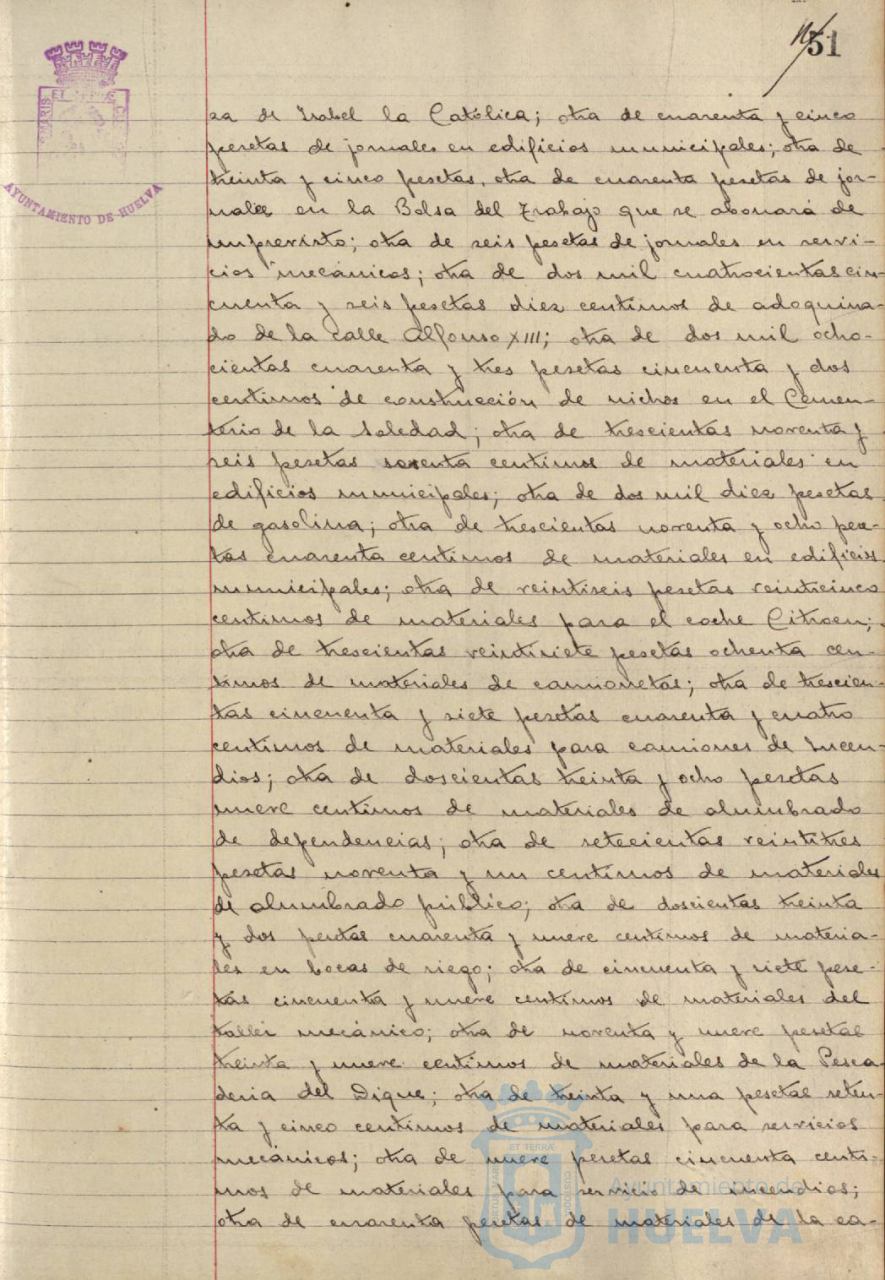 51
MARIS
ET
AYUNTAMIENTO DE HUELVA
za de Isabel la Católica; otra de cuarenta y cinco
pesetas de jornales en edificios municipales; otra de
treinta y cinco pesetas, otra de cuarenta pesetas de jor-
nales en la Bolsa del Trabajo que se abonará de
imprevisto; otra de seis pesetas de jornales en servi-
cios mecánicos; otra de dos mil cuatrocientas cin-
cuenta y seis pesetas diez centimos de adoquina-
do de la calle Alfonso XIII; otra de dos mil ocho-
cientas cuarenta y tres pesetas cincuenta y dos
centimos de construcción de nichos en el Cemen-
terio de la Soledad; otra de trescientas noventa y
seis pesetas centimos de materiales en
edificios municipales; otra de dos mil diez pesetas
de gasolina; otra de trescientas noventa y ocho pese-
tas cuarenta centimos de materiales en edificios
municipales; otra de veintiseis pesetas veinticinco
centimos de materiales para el coche Citroen;
otra de trescientas veintisiete pesetas ochenta cen-
timos de materiales de camionetas; otra de trescien-
tas cincuenta y siete pesetas cuarenta y cuatro
centimos de materiales para camiones de Incen-
dios; otra de doscientas treinta y ocho pesetas
nueve centimos de materiales de alumbrado
de dependencias; otra de setecientas veintitres
pesetas noventa y un centimos de materiales
de alumbrado público; otra de doscientas treinta
y dos pesetas cuarenta y nueve centimos de materia-
les en bocas de riego; otra de cincuenta y siete pese-
tas cincuenta y nueve centimos de materiales del
taller mecánico; otra de noventa y nueve pesetas
treinta y nueve centimos de materiales de la Pesca-
deria del Dique; otra de treinta y una pesetas seten-
ta y cinco centimos de materiales para servicios
mecánicos; otra de nueve pesetas cincuenta centi-
mos de materiales para servicio de incendios;
otra de cuarenta pesetas de materiales de la ca-
ET TERRÆ
Ayuntamiento de
HUELVA